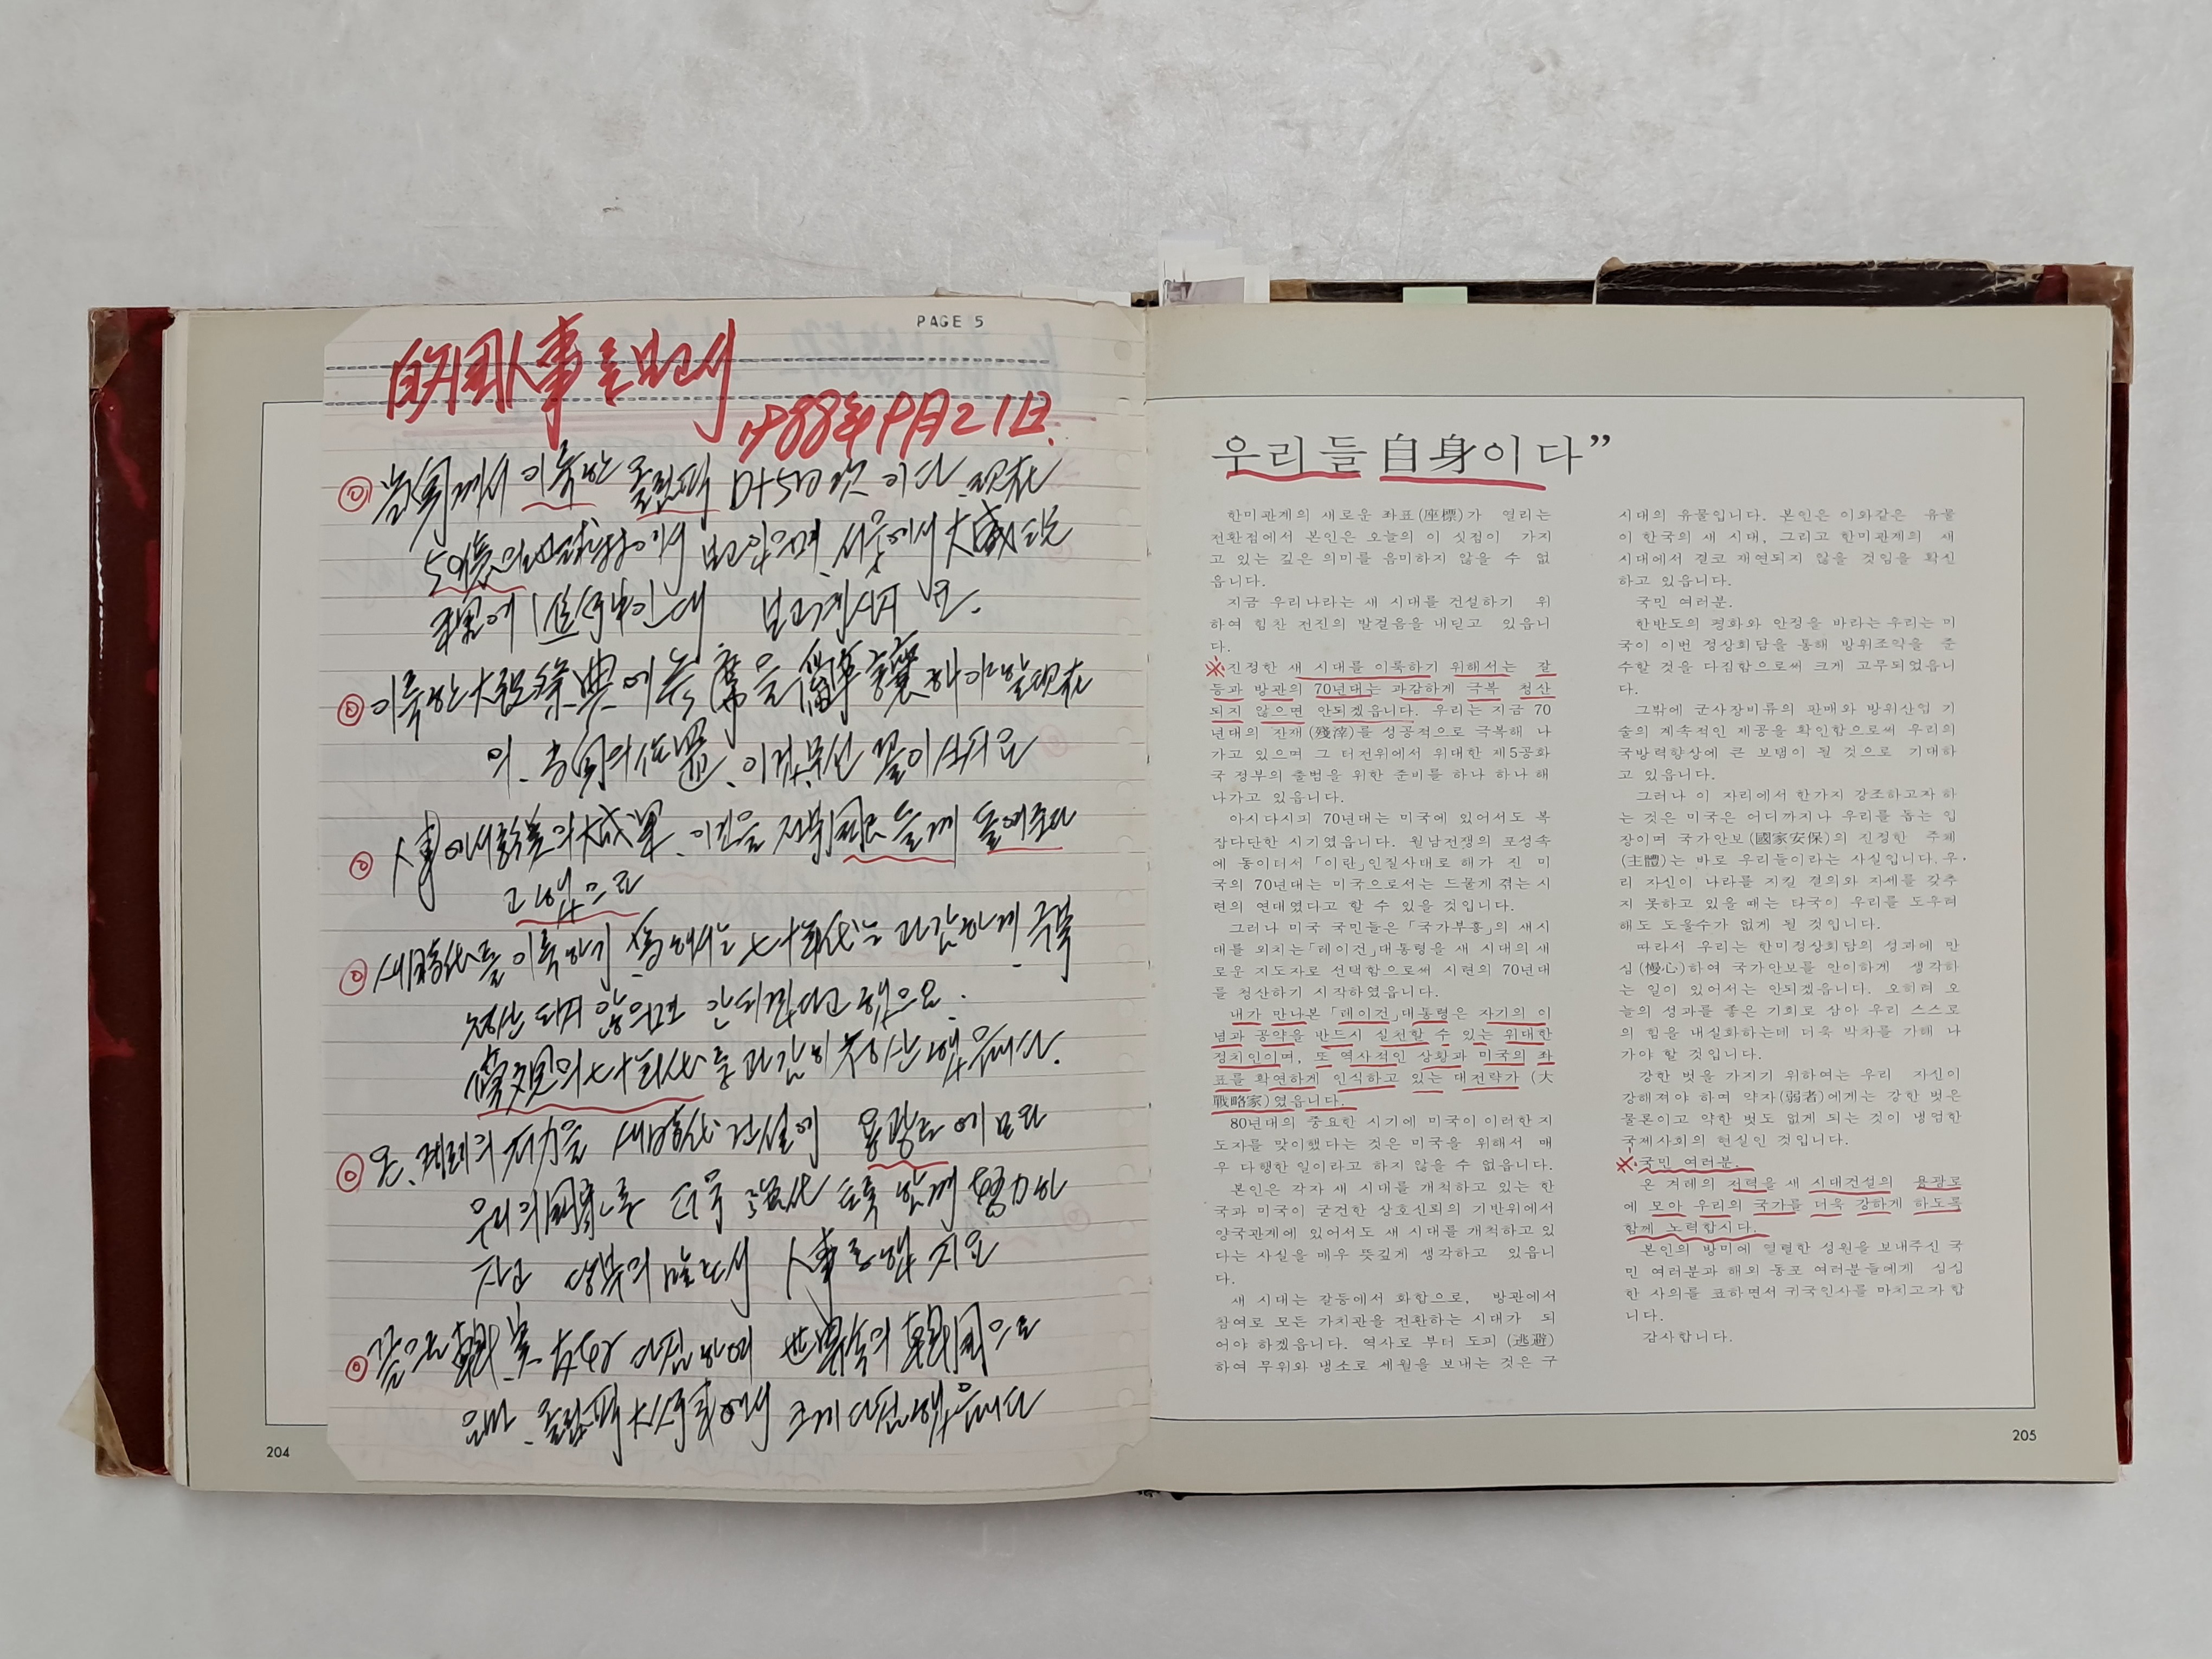 PAGE 5
1988年 9月 21日.
이룩한 올림픽 이다 現在
보고 있으며 서울에서 大成
이룩한 大 典에
의
人事에서 이것을 들려주
고 했으요
새時代를 이룩하기 爲해서는 七十年代는 과감하게 극복
청산 되지 않으면 안되겠다고 했으요.
七十年代를 과감히 청산했읍니다.
온 겨레의 저력을 새時代 건설에 용광로에 모와
우리의 國家를 더욱 强化 토록 함께 努力하
자고 人事를 했지요
韓.美 다짐하며 世界속의 韓國으로
올림픽 크게 다짐했읍니다
204
우리들 自身이다”
한미관계의 새로운 좌표(座標)가 열리는
전환점에서 본인은 오늘의 이 싯점이 가지
고 있는 깊은 의미를 음미하지 않을 수 없
읍니다.
지금 우리나라는 새 시대를 건설하기 위
하여 힘찬 전진의 발걸음을 내딛고 있읍니
다.
※진정한 새 시대를 이룩하기 위해서는 갈
등과 방관의 70년대는 과감하게 극복 청산
되지 않으면 안되겠읍니다. 우리는 지금 70
년대의 잔재(殘滓)를 성공적으로 극복해 나
가고 있으며 그 터전위에서 위대한 제5공화
국 정부의 출범을 위한 준비를 하나 하나 해
나가고 있읍니다.
아시다시피 70년대는 미국에 있어서도 복
잡다단한 시기였읍니다. 월남전쟁의 포성속
에 동이터서 「이란」인질사태로 해가 진 미
국의 70년대는 미국으로서는 드물게 겪는 시
련의 연대였다고 할 수 있을 것입니다.
그러나 미국 국민들은 「국가부흥」의 새시
대를 외치는 「레이건」대통령을 새 시대의 새
로운 지도자로 선택함으로써 시련의 70년대
를 청산하기 시작하였읍니다.
내가 만나본 「레이건」대통령은 자기의 이
념과 공약을 반드시 실천할 수 있는 위대한
정치인이며, 또 역사적인 상황과 미국의 좌
표를 확연하게 인식하고 있는 대전략가 (大
戰略家)였읍니다.
80년대의 중요한 시기에 미국이 이러한 지
도자를 맞이했다는 것은 미국을 위해서 매
우 다행한 일이라고 하지 않을 수 없읍니다.
본인은 각자 새 시대를 개척하고 있는 한
국과 미국이 굳건한 상호신뢰의 기반위에서
양국관계에 있어서도 새 시대를 개척하고 있
다는 사실을 매우 뜻깊게 생각하고 있읍니
다.
새 시대는 갈등에서 화합으로, 방관에서
참여로 모든 가치관을 전환하는 시대가 되
어야 하겠읍니다. 역사로 부터 도피 (逃避)
하여 무위와 냉소로 세월을 보내는 것은 구
시대의 유물입니다. 본인은 이와같은 유물
이 한국의 새 시대, 그리고 한미관계의 새
시대에서 결코 재연되지 않을 것임을 확신
하고 있읍니다.
국민 여러분.
한반도의 평화와 안정을 바라는 우리는 미
국이 이번 정상회담을 통해 방위조약을 준
수할 것을 다짐함으로써 크게 고무되었읍니
다.
그밖에 군사장비류의 판매와 방위산업 기
술의 계속적인 제공을 확인함으로써 우리의
국방력향상에 큰 보탬이 될 것으로 기대하
고 있읍니다.
그러나 이 자리에서 한가지 강조하고자 하
는 것은 미국은 어디까지나 우리를 돕는 입
장이며 국가안보(國家安保)의 진정한 주체
(主體)는 바로 우리들이라는 사실입니다. 우
리 자신이 나라를 지킬 결의와 자세를 갖추
지 못하고 있을 때는 타국이 우리를 도우려
해도 도울수가 없게 될 것입니다.
따라서 우리는 한미정상회담의 성과에 만
심(慢心)하여 국가안보를 안이하게 생각하
는 일이 있어서는 안되겠읍니다. 오히려 오
늘의 성과를 좋은 기회로 삼아 우리 스스로
의 힘을 내실화하는데 더욱 박차를 가해 나
가야 할 것입니다.
강한 벗을 가지기 위하여는 우리 자신이
강해져야 하며 약자(弱者)에게는 강한 벗은
물론이고 약한 벗도 없게 되는 것이 냉엄한
국제사회의 현실인 것입니다.
※국민 여러분.
온 겨레의 저력을 새 시대건설의 용광로
에 모아 우리의 국가를 더욱 강하게 하도록
함께 노력합시다.
본인의 방미에 열렬한 성원을 보내주신 국
민 여러분과 해외 동포 여러분들에게 심심
한 사의를 표하면서 귀국인사를 마치고자 합
니다.
감사합니다.
205